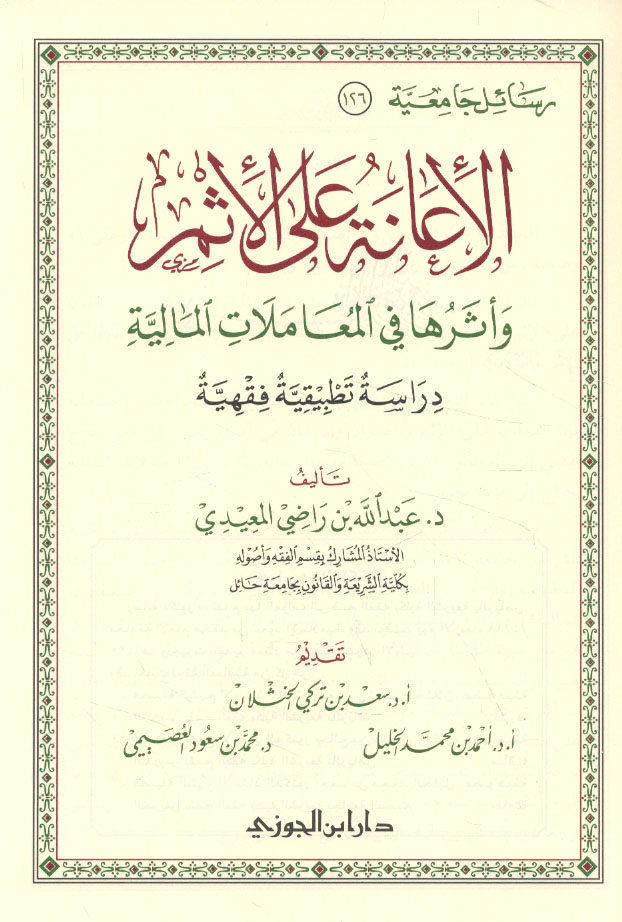 رسَائِل جَامِعيَّة ١٢٦
الإِعَانَةُ عَلَى الإِثْمِ
وَأَثَرُهَا فِي المُعَامَلَاتِ المَالِيَّةِ
دِرَاسَةٌ تَطْبِيْقِيَّةٌ فِقْهِيَّةٌ
تَأليفُ
د. عَبْدُ اللَّه بْن رَاضِي المعِيدِي
الأُسْتَاذُ المُشَارِك بقِسْمِ الفِقْهِ وَأُصُولِهِ
بكُليَّةِ الشَّرِيعَةِ وَالقَانُونِ بجَامِعَةِ حَائِل
تَقْدِيْمُ
أ.د. سعد بن تركي الخثلان
أ.د. أحمد بن محمد الخليل د. محمد بن سعود العصيمي
دار ابن الجوزي